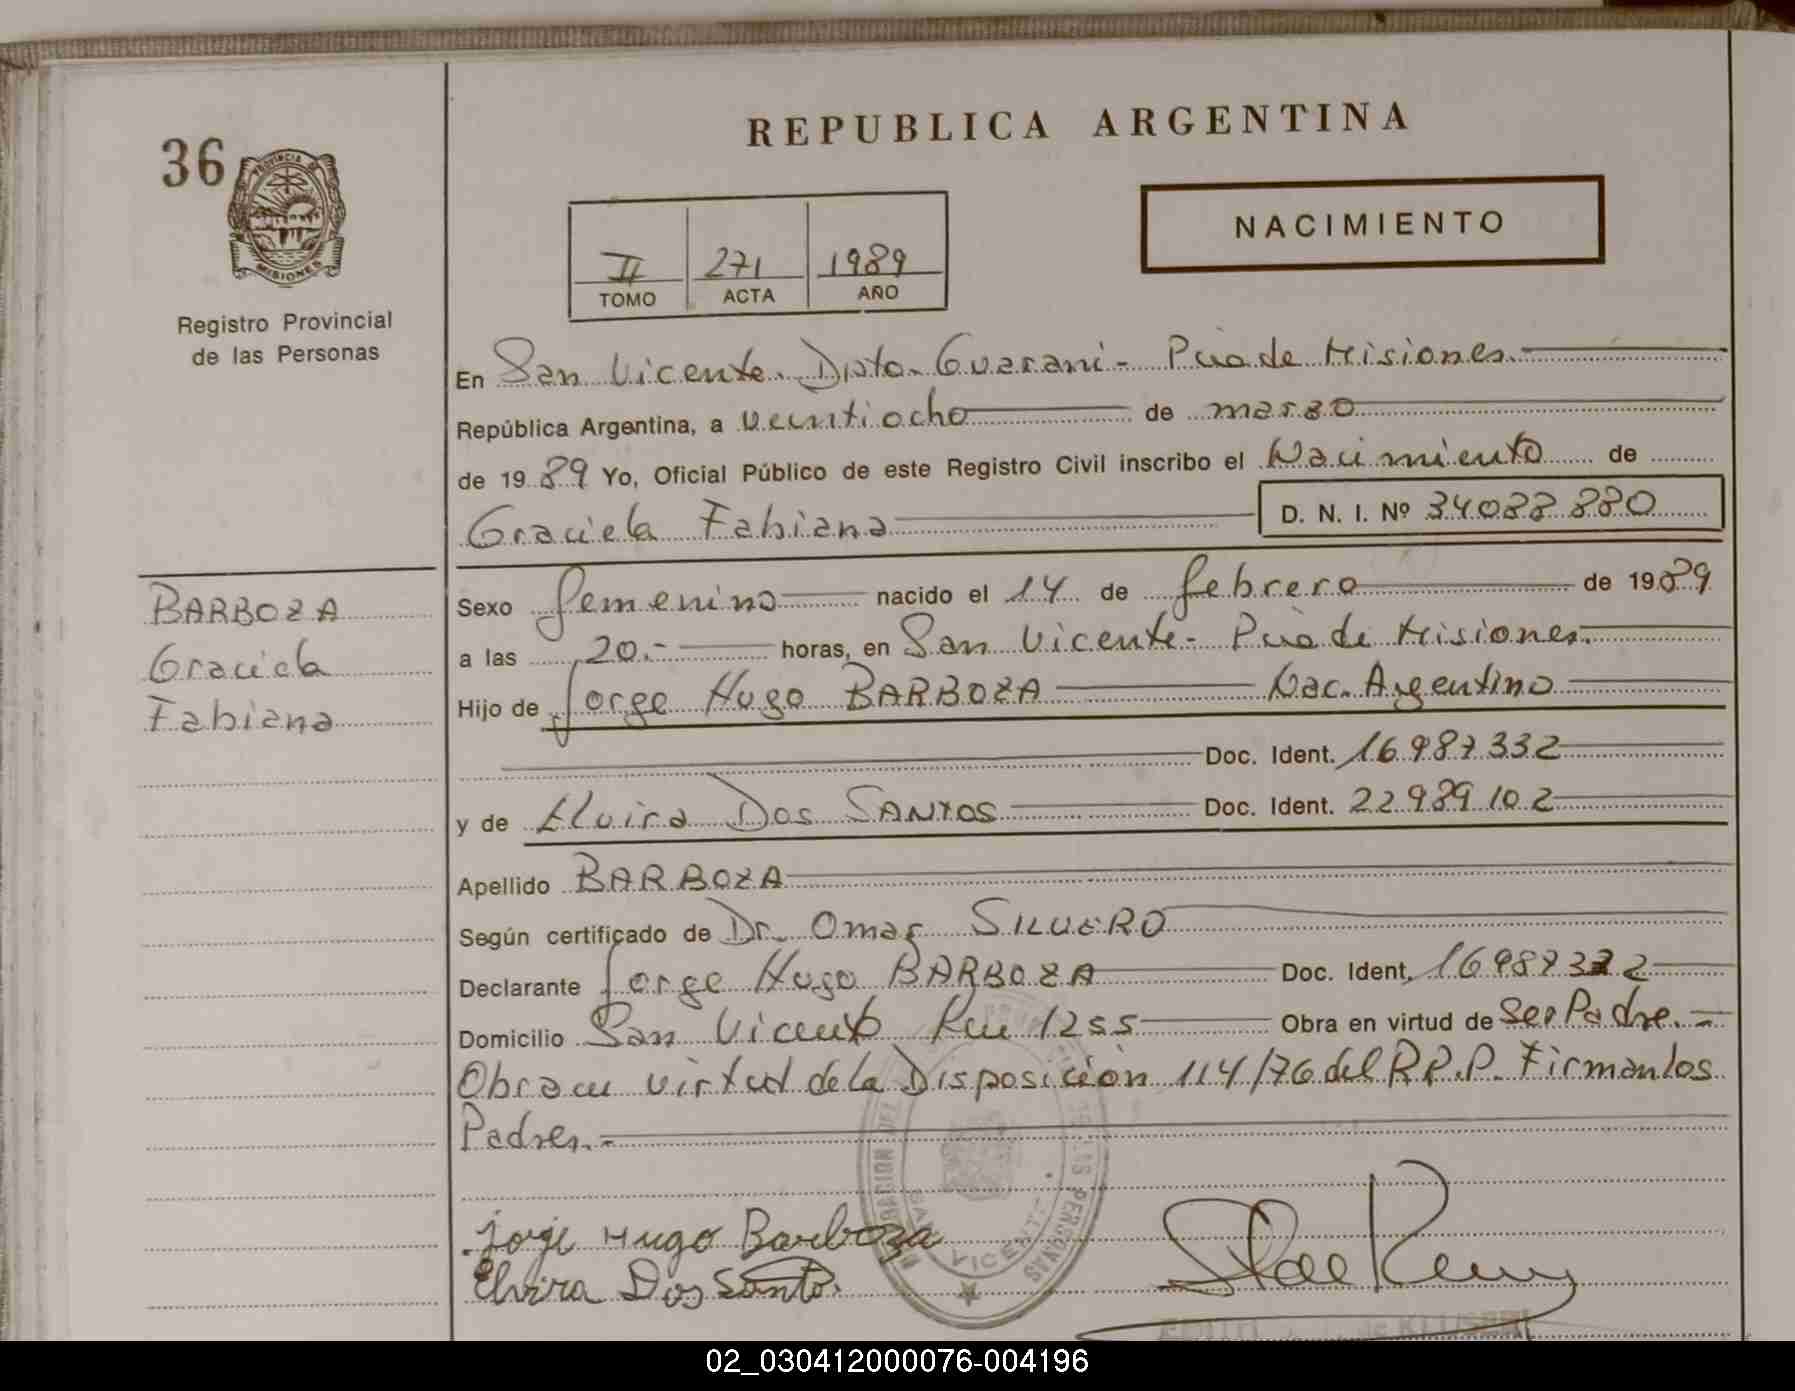 REPUBLICA ARGENTINA
36
PROVINCIA DE
MISIONES
Registro Provincial
de las Personas
NACIMIENTO
II 271 1989
TOMO ACTA AÑO
En San Vicente. Dpto. Guarani - Pcia de Misiones.
República Argentina, a veintiocho de marzo
de 1989 Yo, Oficial Público de este Registro Civil inscribo el Nacimiento de
Graciela Fabiana D. N. I. Nº 34.088.880
BARBOZA
Graciela
Fabiana
Sexo femenino nacido el 14 de febrero de 1989
a las 20.- horas, en San Vicente - Pcia de Misiones.
Hijo de Jorge Hugo BARBOZA Nac. Argentino
Doc. Ident. 16.987.332
y de Elvira Dos SANTOS Doc. Ident. 22.989.102
Apellido BARBOZA
Según certificado de Dr. Omar SILVERO
Declarante Jorge Hugo BARBOZA Doc. Ident. 16987332
Domicilio San Vicente Km 1255 Obra en virtud de ser Padre.-
Obra en virtud de la Disposición 114/76 del R.P.P. Firman los
Padres.-
Jorge Hugo Barboza
Elvira Dos Santos
SAN VICENTE
DE LAS PERSONAS
02_030412000076-004196